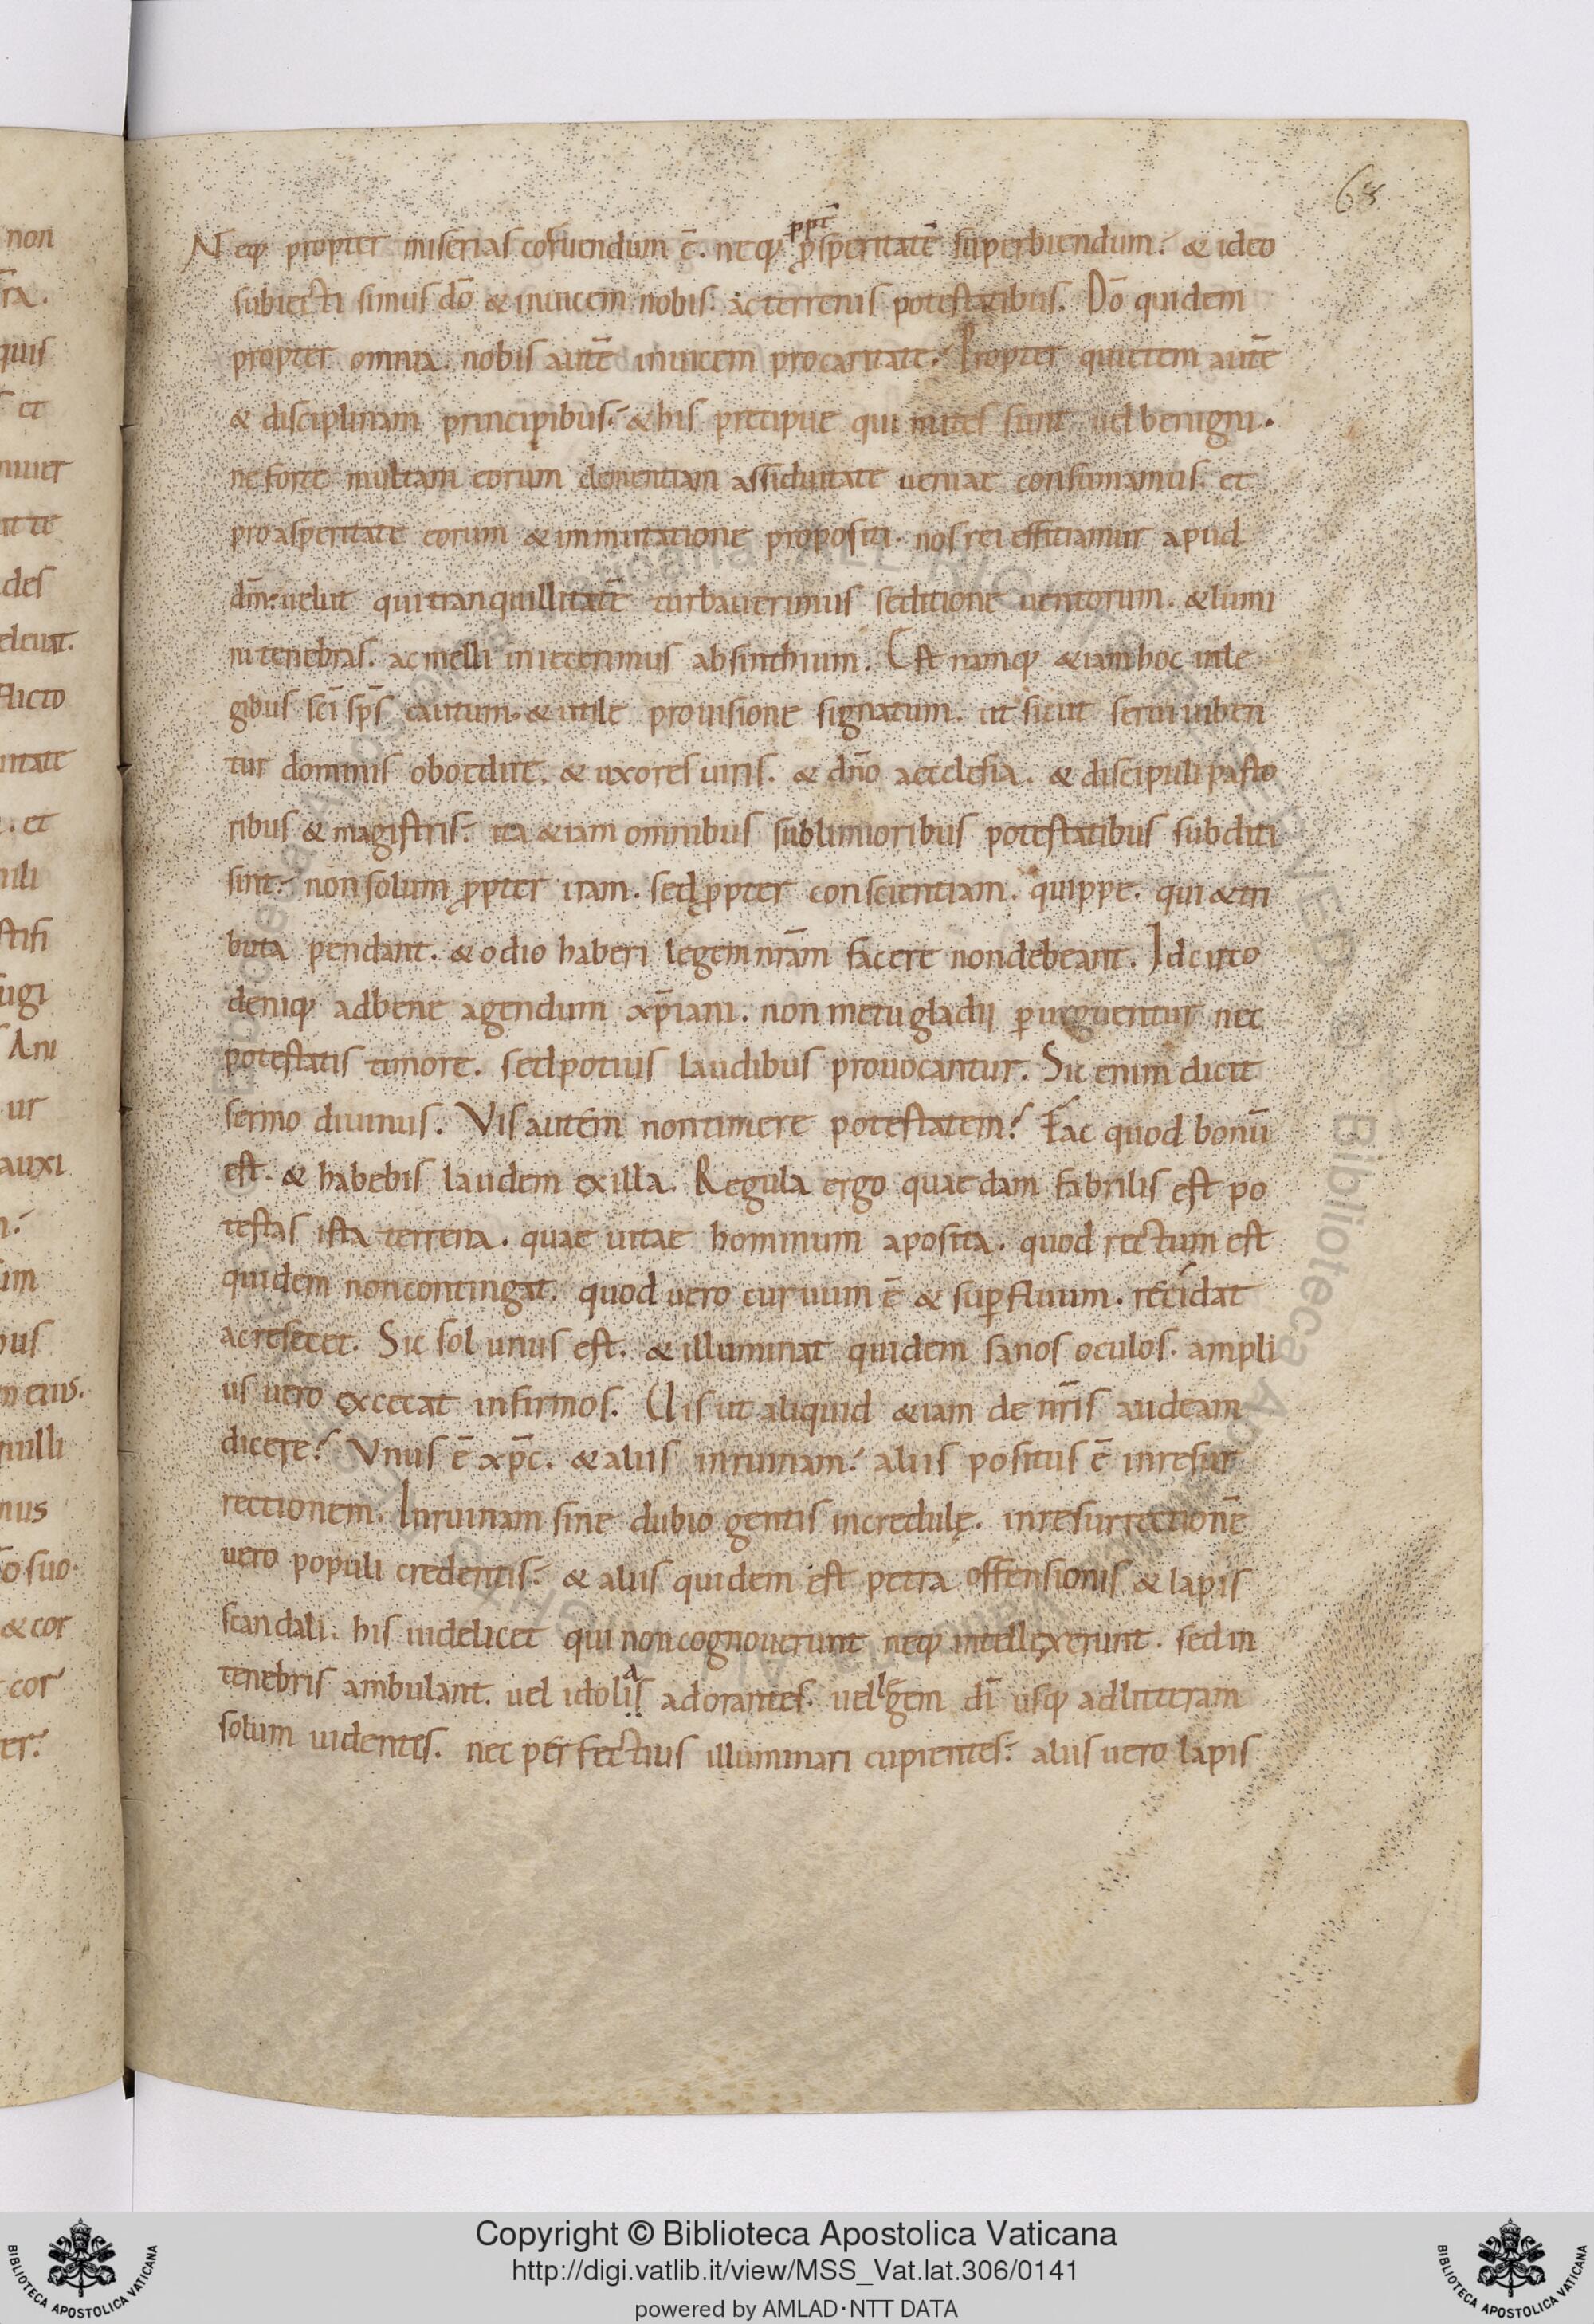 68
ppt̄
Neq; propter miserias corruendum ē. neq; p̱speritatē superbiendum. & ideo
subiecti simus dō & inuicem nobis. ac terrenis potestatibus. Dō quidem
propter omnia. nobis autē inuicem pro caritate. Propter quietem autē
& disciplinam principibus. & his precipue qui mites sunt uel benigni.
ne forte multam eorum clementiam assiduitate ueniae consumamus. et
pro asperitate eorum & inmutatione propositi. nos rei efficiamur apud
dm̄. uelut qui tranquillitatē turbauerimus seditione uentorum. & lumi
ni tenebras. ac melli iniecerimus absinthium. Est namq; & iam hoc in le
gibus sc̄i sp̄s cautum. & utile prouisione signatum. ut sicut serui iuben
tur dominis oboedire. & uxores uiris. & dn̄o aecclesia. & discipuli pasto
ribus & magistris. ita & iam omnibus sublimioribus potestatibus subditi
sint. non solum ꝓpter iram. sed ꝓpter conscientiam. quippe. qui & tri
buta pendant. & odio haberi legem nr̄am facere non debeant. Idcirco
deniq; ad bene agendum xp̄iani. non metu gladii ꝑurguentur nec
potestatis timore. sed potius laudibus prouocantur. Sic enim dicit
sermo diuinus. Vis autem non timere potestatem? Fac quod bonū
est. & habebis laudem ex illa. Regula ergo quaedam fabrilis est po
testas ista terrena. quae uitae hominum aposita. quod rectum est
quidem non contingat. quod uero curuum ē & suꝑfluum. recidat
ac resecet. Sic sol unus est. & illuminat quidem sanos oculos. ampli
us uero excecat infirmos. Uis ut aliquid & iam de nr̄is audeam
dicere? Vnus ē xp̄c. & aliis in ruinam. aliis positus ē in resur
rectionem. In ruinam sine dubio gentis incredulę. in resurrectionē
uero populi credentis. & aliis quidem est petra offensionis & lapis
scandali. his uidelicet qui non cognouerunt neq; intellexerunt. sed in
a
tenebris ambulant. uel idolis adorantes. uel legem dī usq; ad litteram
solum uidentes. nec perfectius illuminari cupientes. aliis uero lapis
Copyright © Biblioteca Apostolica Vaticana
http://digi.vatlib.it/view/MSS_Vat.lat.306/0141
powered by AMLAD·NTT DATA
BIBLIOTECA APOSTOLICA VATICANA
BIBLIOTECA APOSTOLICA VATICANA